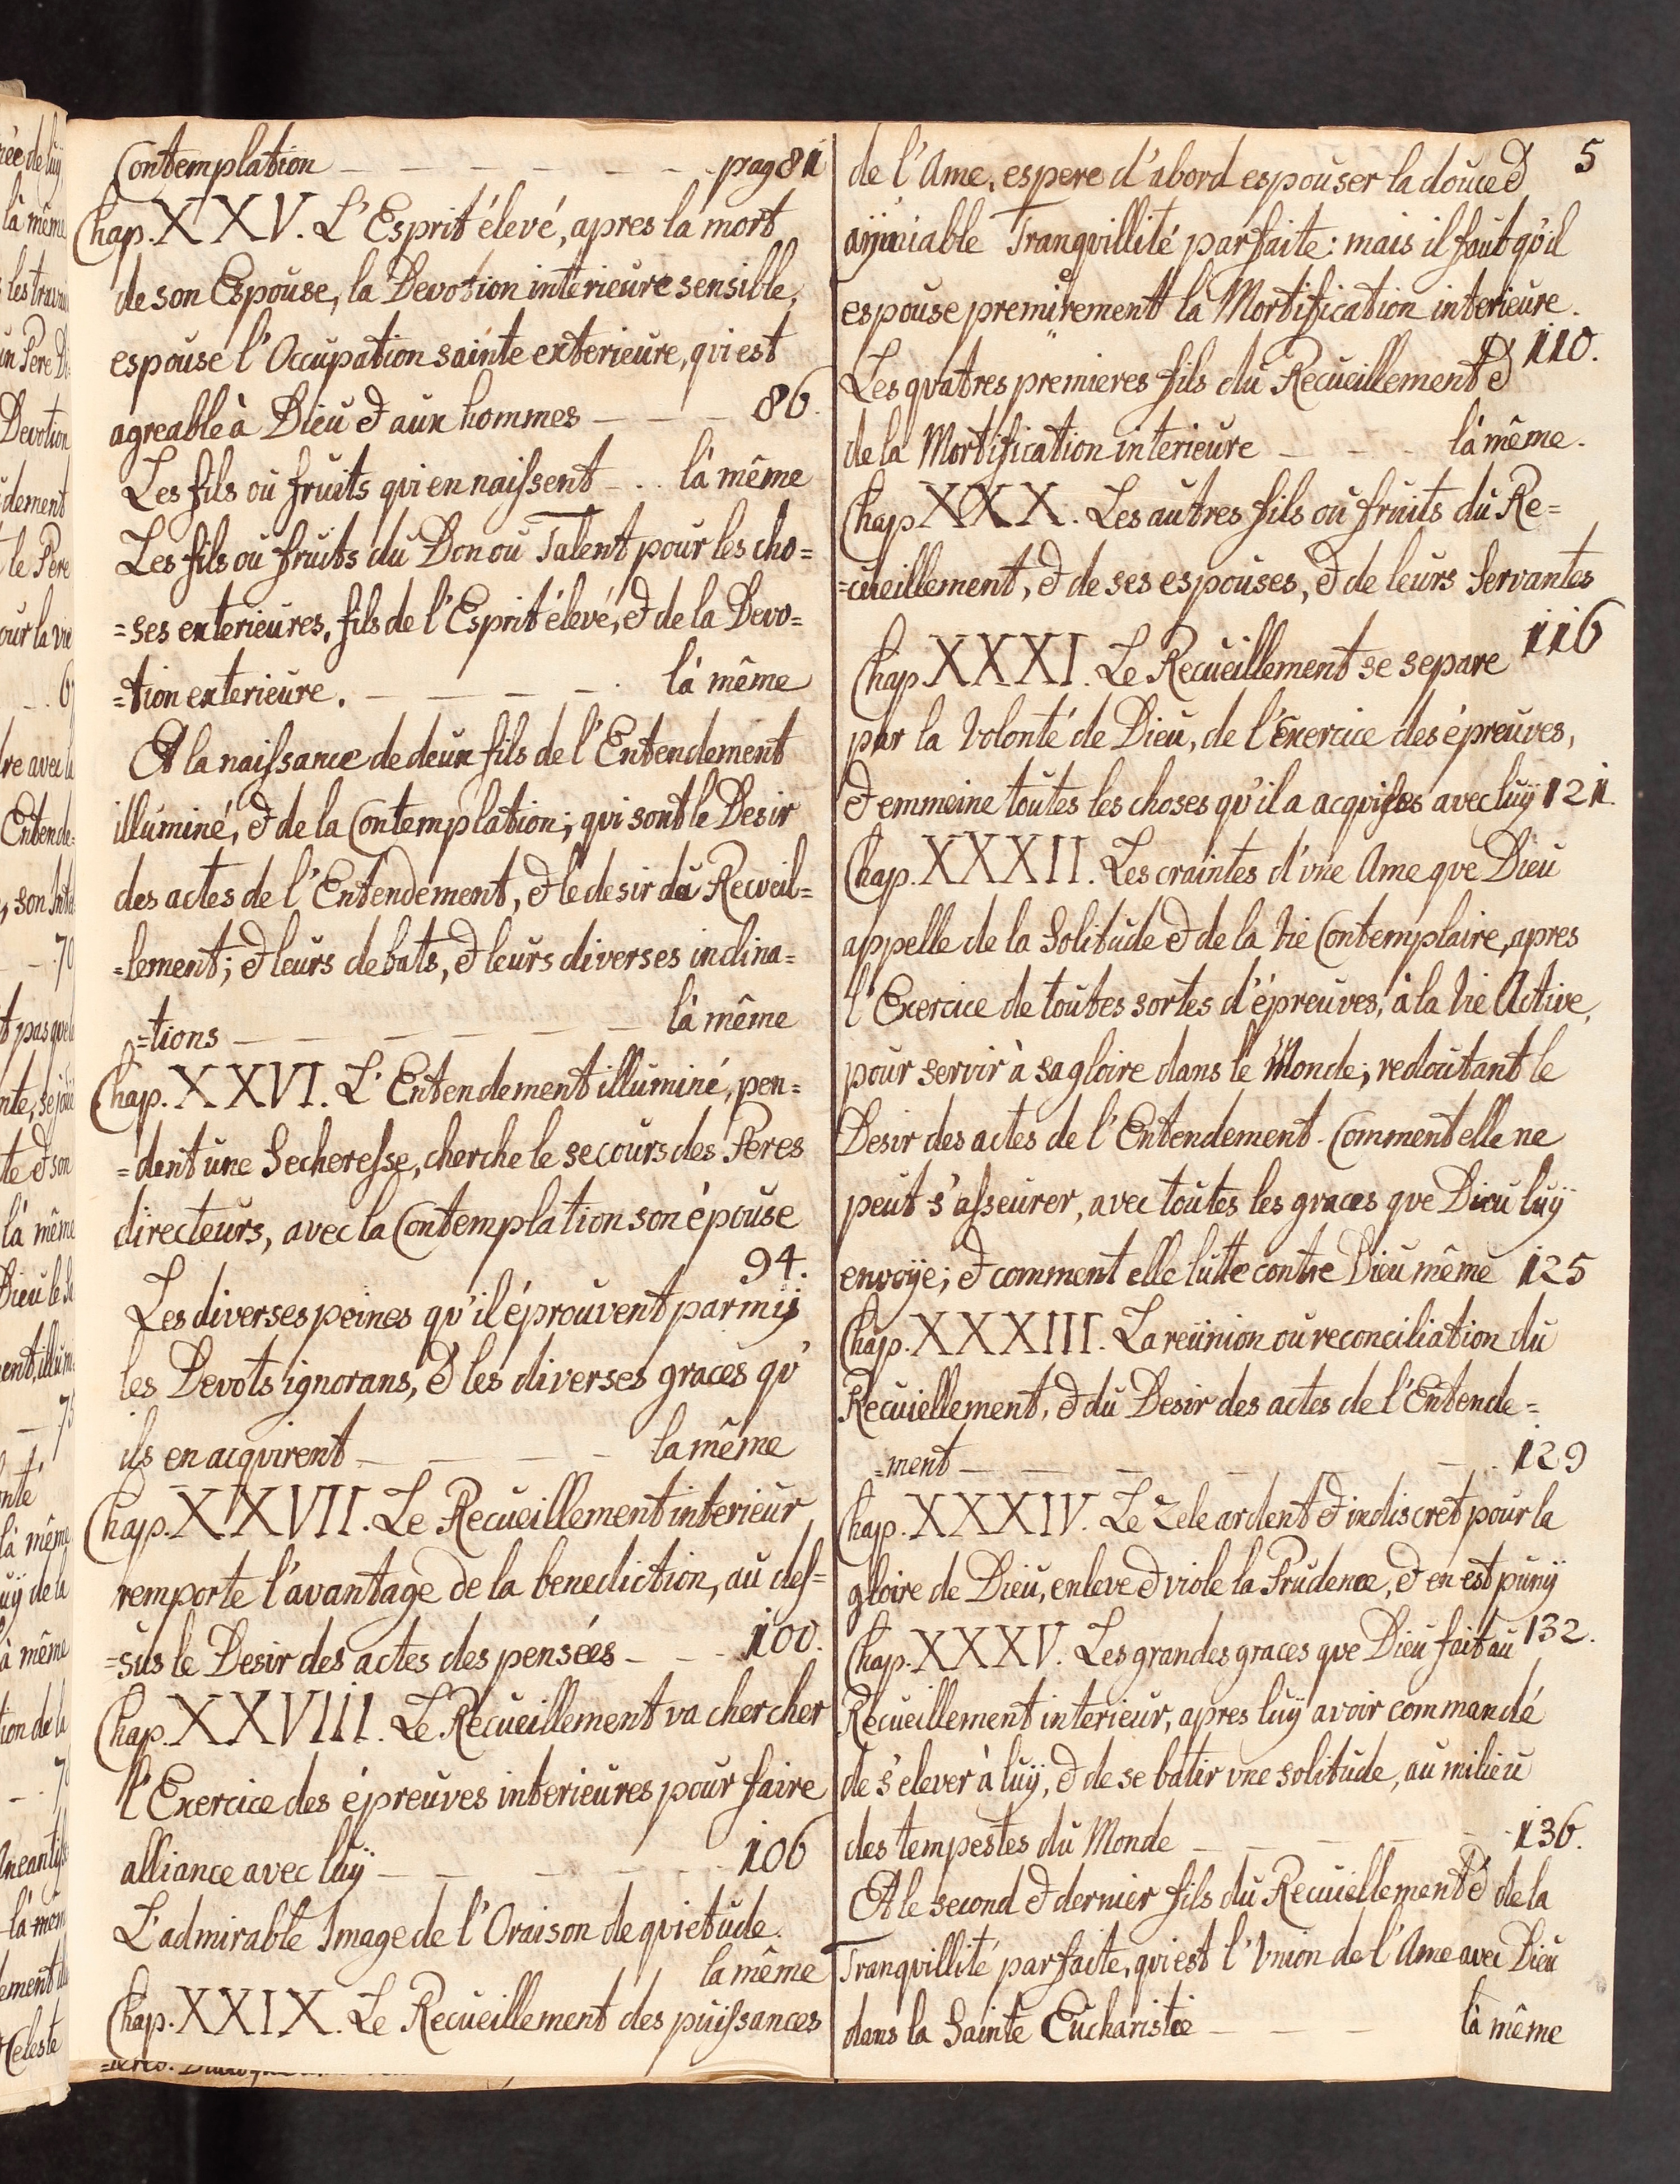 Contemplation - - - - - - pag 81
Chap. XXV. L'Esprit élevé, apres la mort
de son Espouse, la Devotion interieure sensible,
espouse l'Occupation sainte exterieure, qui est
agreable à Dieu & aux hommes - - - 86.
Les fils ou fruits qui en naissent - . . là même
Les fils ou fruits du Don ou Talent pour les cho=
=ses exterieures, fils de l'Esprit élevé, & de la Devo=
=tion exterieure. - - - - . là même
& la naissance de deux fils de l'Entendement
illuminé, & de la Contemplation; qui sont le Desir
des actes de l'Entendement, & le desir du Recveil=
=lement; & leurs debats, & leurs diverses inclina=
=tions - - - - - - là même
Chap. XXVI. L'Entendement illuminé, pen=
=dent une Secheresse, cherche le secours des Peres
directeurs, avec la Contemplation son épouse
94.
Les diverses peines qv'il éprouvent parmij
les Devots ignorans, & les diverses graces qv'
ils en acqvirent - - - - la même
Chap. XXVII. Le Recueillement interieur
remporte l'avantage de la benediction, au des=
=sus le Desir des actes des pensées - - - 100.
Chap. XXVIII. Le Recueillement va chercher
l'Exercice des épreuves interieures pour faire
alliance avec luÿ - - - - - - 106
L'admirable Image de l'Oraison de qvietude.
la même
Chap. XXIX. Le Recueillement des puissances
5
de l'Ame, espere d'abord espouser la douce &
aijmiable Tranqvillité parfaite: mais il faut qv'il
espouse premirement la Mortification interieure.
110.
Les qvatres premieres fils du Recueillement &
de la Mortification interieure - - - là même.
Chap. XXX. Les autres fils ou fruits du Re=
=cueillement, & de ses espouses, & de leurs Servantes
116
Chap. XXXI. Le Recueillement se separe
par la Volonté de Dieu, de l'Exercice des épreuves,
& emmeine toutes les choses qv'il a acqvises avec luÿ 121.
Chap. XXXII. Les craintes d'vne Ame qve Dieu
appelle de la Solitude & de la Vie Contemplaire, apres
l'Exercice de toutes sortes d'épreuves, à la Vie Active,
pour servir à sa gloire dans le Monde; redoutant le
Desir des actes de l'Entendement. Comment elle ne
peut s'asseurer, avec toutes les graces qve Dieu luÿ
envoÿe; & comment elle lutte contre Dieu même 125
Chap. XXXIII. La reünion ou reconciliation du
Recuiellement, & du Desir des actes de l'Entende=
=ment - - - - - 129
Chap. XXXIV. Le Zele ardent & indiscret pour la
gloire de Dieu, enleve & viole la Prudence, & en est punÿ
132.
Chap. XXXV. Les grandes graces qve Dieu fait au
Recueillement interieur, apres luÿ avoir commandé
de s'elever à luÿ, & de se batir vne solitude, au milieu
des tempestes du Monde - - - - - 136.
& le second & dernier fils du Recuiellement & de la
Tranqvillité parfaite, qvi est l'Vnion de l'Ame avec Dieu
dans la Sainte Eucharistie - - - là même